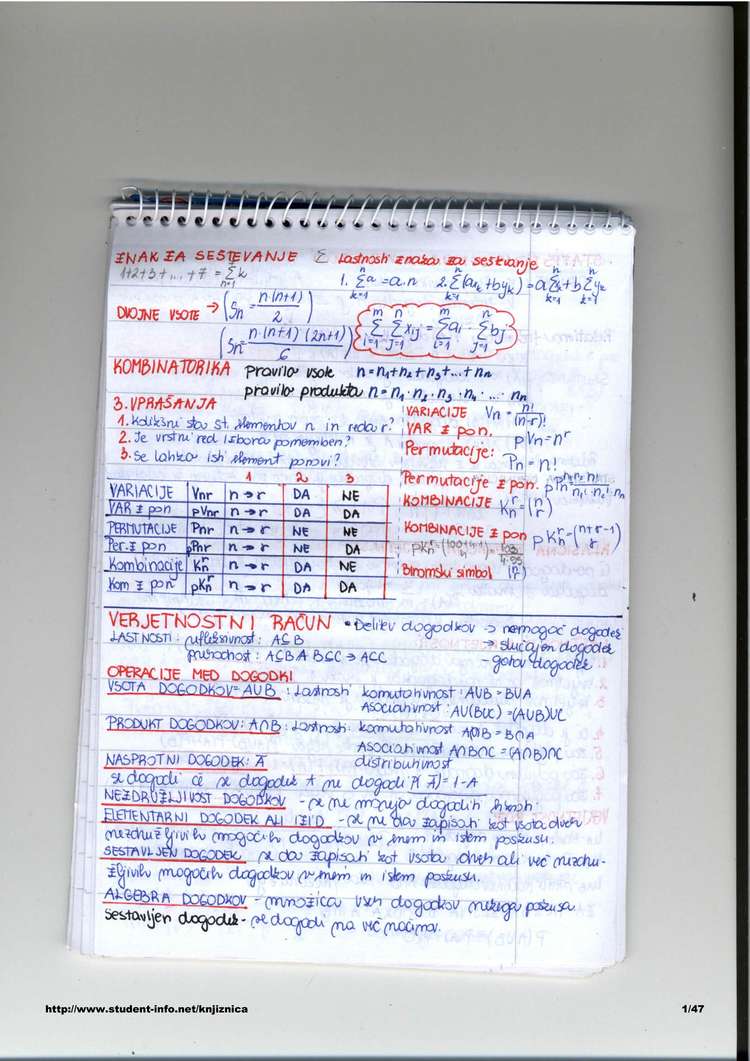 ZNAK ZA SEŠTEVANJE Σ Lastnosti znaka za seštevanje
1+2+3+...+7 = Σ k n=1
1. Σ a = a.n k=1 n 2. Σ (ak + byk) = a Σ xk + b Σ yk
DVOJNE VSOTE → (Sn = n(n+1) / 2)
(Sn = n·(n+1)·(2n+1) / 6)
Σ Σ xij = Σ ai · Σ bj
KOMBINATORIKA pravilo vsote n = n1+n2+n3+...+nn
pravilo produkta n = n1·n2·n3·n4·...·nn
3. VPRAŠANJA
1. Kolikšni sta št. elementov n in reda r?
2. Je vrstni red izbora pomemben?
3. Se lahko isti element ponovi?
VARIACIJE Vn = n! / (n-r)!
VAR z pon. pVn = n^r
Permutacije: Pn = n!
Permutacije z pon.
KOMBINACIJE Kn^r = (n r)
KOMBINACIJE z pon pKn^r = (n+r-1 r)
Binomski simbol (n r)
1 2 3
VARIACIJE Vnr n→r DA NE
VAR z pon pVnr n→r DA DA
PERMUTACIJE Pnr n→r NE NE
Per. z pon pPnr n→r NE DA
Kombinacije Kn^r n→r DA NE
Kom z pon pKn^r n→r DA DA
VERJETNOSTNI RAČUN • Delitev dogodkov → nemogoč dogodek
LASTNOSTI: refleksivnost: A⊆B → slučajen dogodek
prirodnost: A⊆B ∧ B⊆C ⇒ A⊂C - gotov dogodek
OPERACIJE MED DOGODKI
VSOTA DOGODKOV = A∪B : Lastnosti komutativnost: A∪B = B∪A
Asociativnost: A∪(B∪C) = (A∪B)∪C
PRODUKT DOGODKOV: A∩B : Lastnosti: komutativnost A∩B = B∩A
Asociativnost A∩B∩C = (A∩B)∩C
distributivnost
NASPROTNI DOGODEK: A̅
se dogodi če se dogodek A ne dogodi P(A̅) = 1-A
NEZDRUŽLJIVOST DOGODKOV - se ne morejo dogoditi hkrati.
ELEMENTARNI DOGODEK ALI IZID - se ne da zapisati kot vsota dveh
nezdružljivih mogočih dogodkov v enem in istem poskusu.
SESTAVLJEN DOGODEK se da zapisati kot vsota dveh ali več nezdru-
žljivih mogočih dogodkov v enem in istem poskusu.
ALGEBRA DOGODKOV - množica vseh dogodkov nekega poskusa
Sestavljen dogodek - se dogodi na več načinov.
http://www.student-info.net/knjiznica 1/47